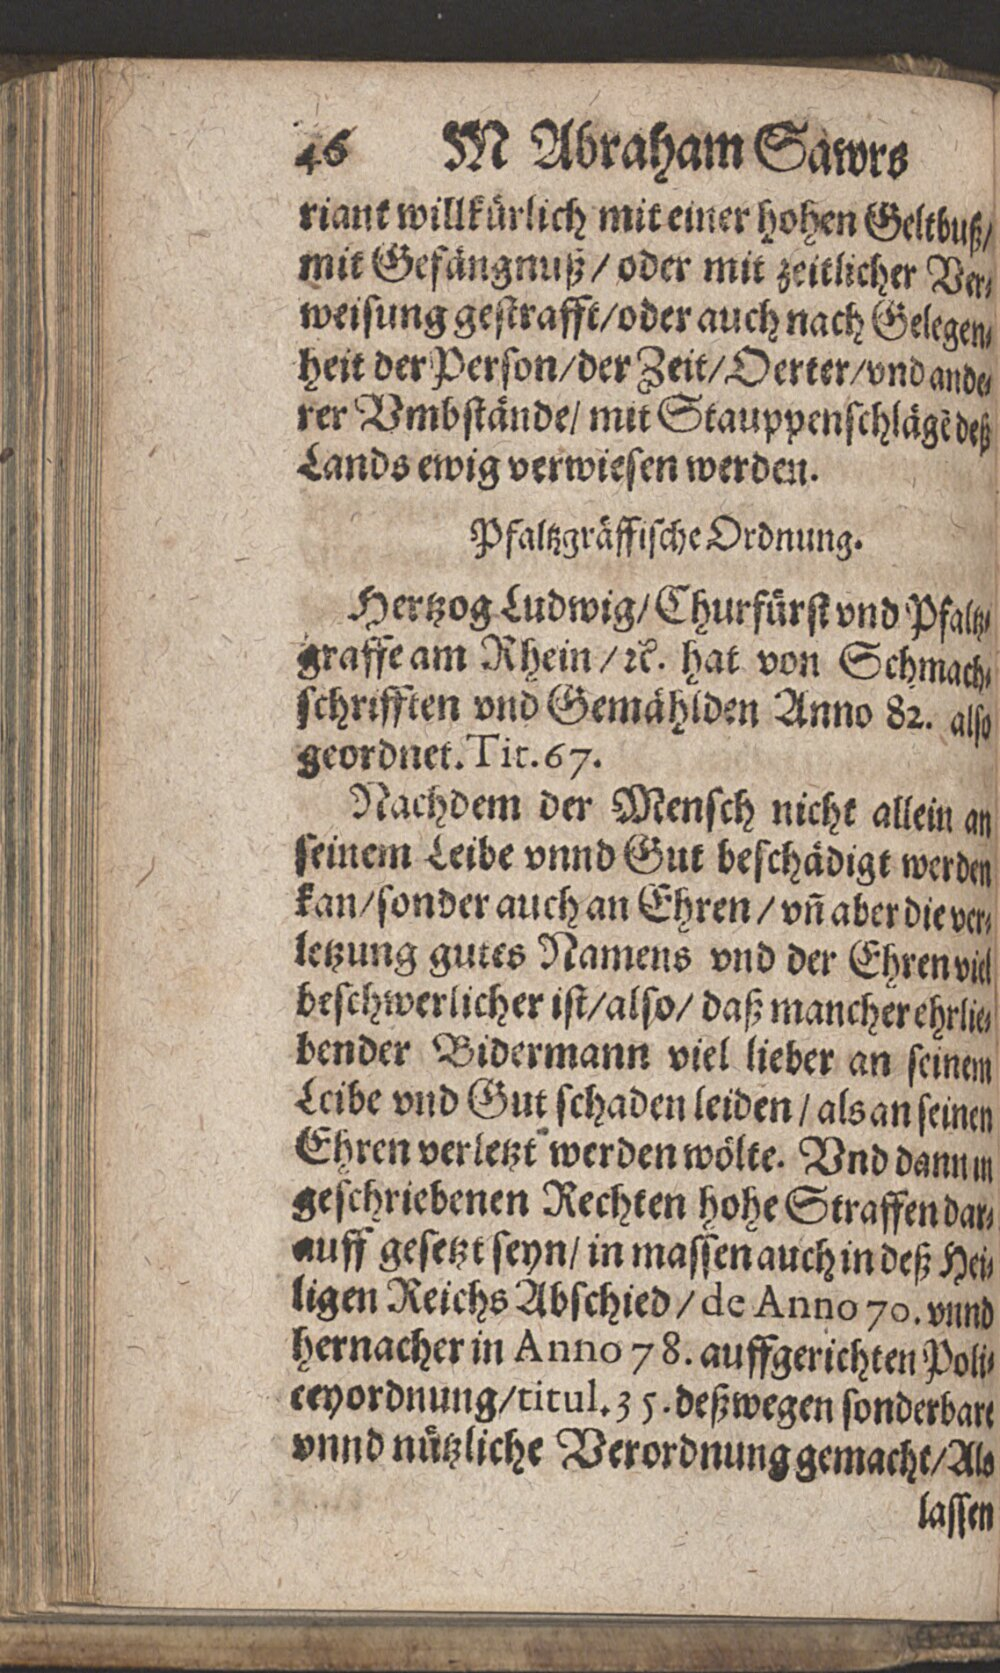 46 M Abraham Sawrs
riant willkürlich mit einer hohen Geltbuß/
mit Gefängnuß / oder mit zeitlicher Ver⸗
weisung gestrafft/oder auch nach Gelegen⸗
heit der Person/der Zeit/Oerter/vnd ande⸗
rer Vmbstände/ mit Stauppenschlägē deß
Lands ewig verwiesen werden.
Pfaltzgräffische Ordnung.
Hertzog Ludwig/Churfürst vnd Pfaltz⸗
graffe am Rhein/ꝛc. hat von Schmach⸗
schrifften vnd Gemählden Anno 82. also
geordnet. Tit. 67.
Nachdem der Mensch nicht allein an
seinem Leibe vnnd Gut beschädigt werden
kan/sonder auch an Ehren/ vñ aber die ver⸗
letzung gutes Namens vnd der Ehren viel
beschwerlicher ist/also/ daß mancher ehrlie⸗
bender Bidermann viel lieber an seinem
Leibe vnd Gut schaden leiden/ als an seinen
Ehren verletzt werden wölte. Vnd dann in
geschriebenen Rechten hohe Straffen dar⸗
auff gesetzt seyn/ in massen auch in deß Hei⸗
ligen Reichs Abschied/ de Anno 70. vnnd
hernacher in Anno 78. auffgerichten Poli⸗
ceyordnung/titul. 35. deßwegen sonderbare
vnnd nützliche Verordnung gemacht/Als
lassen